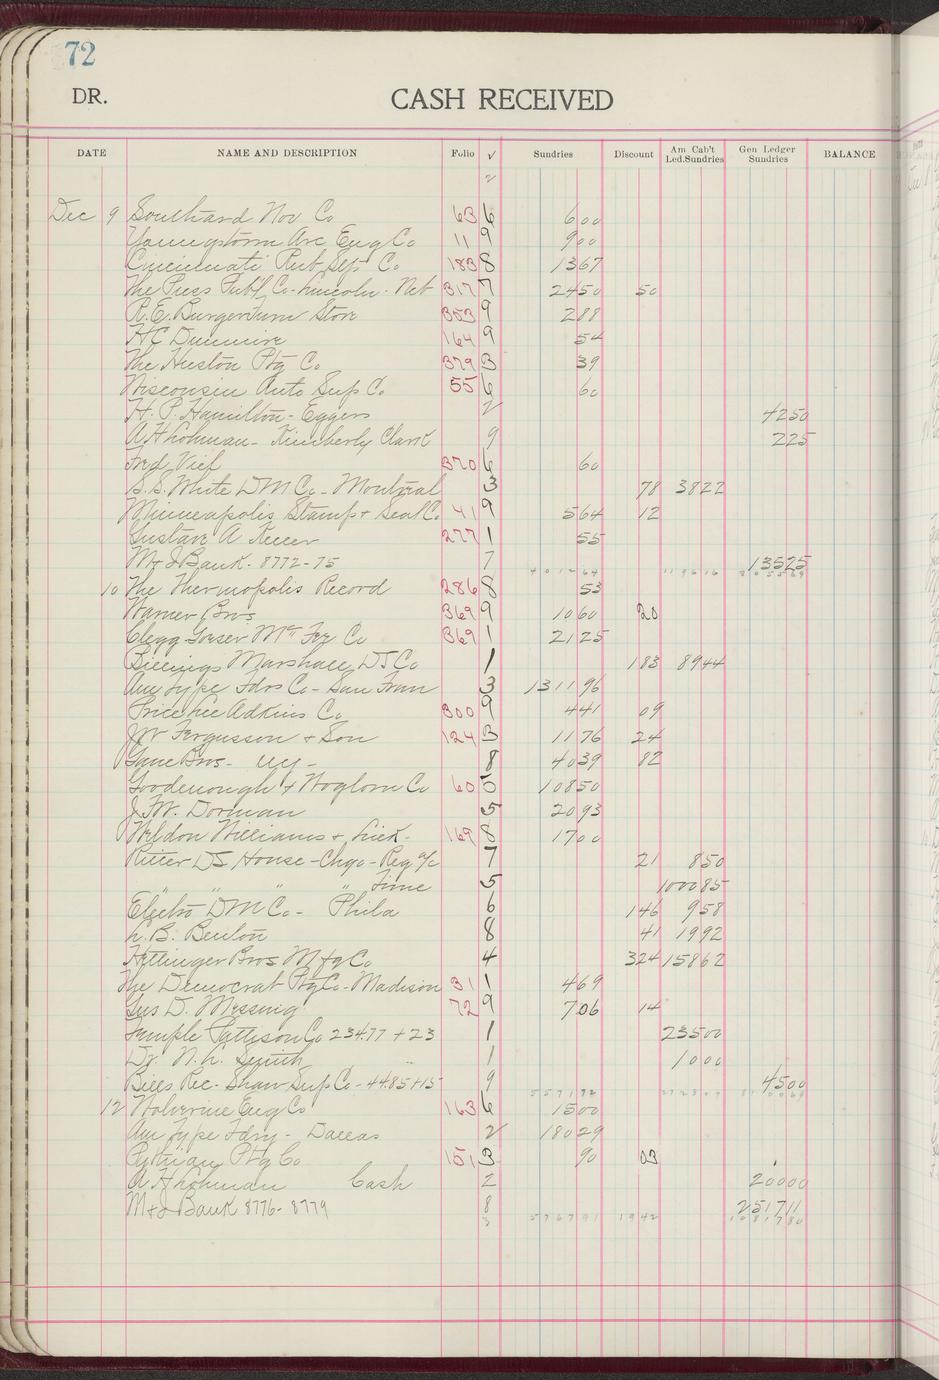 72
DR. CASH RECEIVED
DATE NAME AND DESCRIPTION Folio √ Sundries Discount Am Cab't Led.Sundries Gen Ledger Sundries BALANCE
Dec 9 Southard Nov Co 63 6 600
Youngstown Arc Eng Co 11 9 900
Cincinnati Rub Co 183 8 1367
The Press Publ Co - Lincoln - Neb 317 7 2450 50
R.E. Burgentum Store 353 9 288
H C Dunmire 164 9 54
The Huston Ptg Co 379 3 39
Wisconsin Auto Sup Co 55 6 60
H. P. Hamilton - Eggers 2 4250
A H Lohman - Kimberly Clark 9 225
Fred Vief 370 6 60
S.S. White D M Co - Montreal 3 78 3822
Minneapolis Stamp + Seal Co 41 9 564 12
Gustave A 277 1 55
M+I Bank - 8772-75 7 13525
10 The Thermopolis Record 286 8 53
Warner Bros 369 9 1060 20
Clegg Goeser Mtr Fgr Co 369 1 2125
Billings Marshall DS Co 1 183 8944
Am Type Fdrs Co - San Fran 3 131196
Price Lee Adkins Co 300 9 441 09
JW Fergusson + Son 124 3 1176 24
Gane Bros - NY - 8 4039 82
Goodenough + Woglom Co 60 0 10850
J.F.W. Dorman 5 2093
Weldon Williams + Lick - 169 8 1700
Ritter DS House - Chgo - Reg a/c 7 21 850
" " " " Time 5 100085
Electro D M Co - Phila 6 146 958
L.B. Benton 8 41 1992
Hettinger Bros Mfg Co 4 324 15862
The Democrat Ptg Co - Madison 31 1 469
Gus D. Messing 72 9 706 14
Temple Pattison Co 234.77 + 23 1 23500
Dr. N. L. Smith 1 1000
Bills Rec - Shaw Sup Co - 44.85+15 9 4500
12 Wolverine Eng Co 163 6 1500
Am Type Fdry - Dallas 2 18029
Pythian Ptg Co 151 3 90 03
A H Lohman Cash 2 20000
M+I Bank 8776-8779 8 251711
576791 1942 1081780